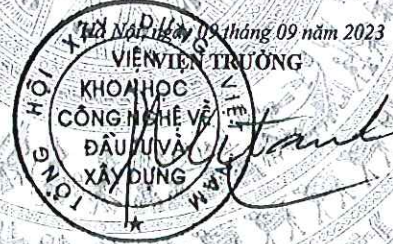 Hà Nội, ngày 09 tháng 09 năm 2023
VIỆN TRƯỞNG
TỔNG HỘI XÂY DỰNG VIỆT NAM
VIỆN
KHOA HỌC
CÔNG NGHỆ VỀ
ĐẦU TƯ VÀ
XÂY DỰNG